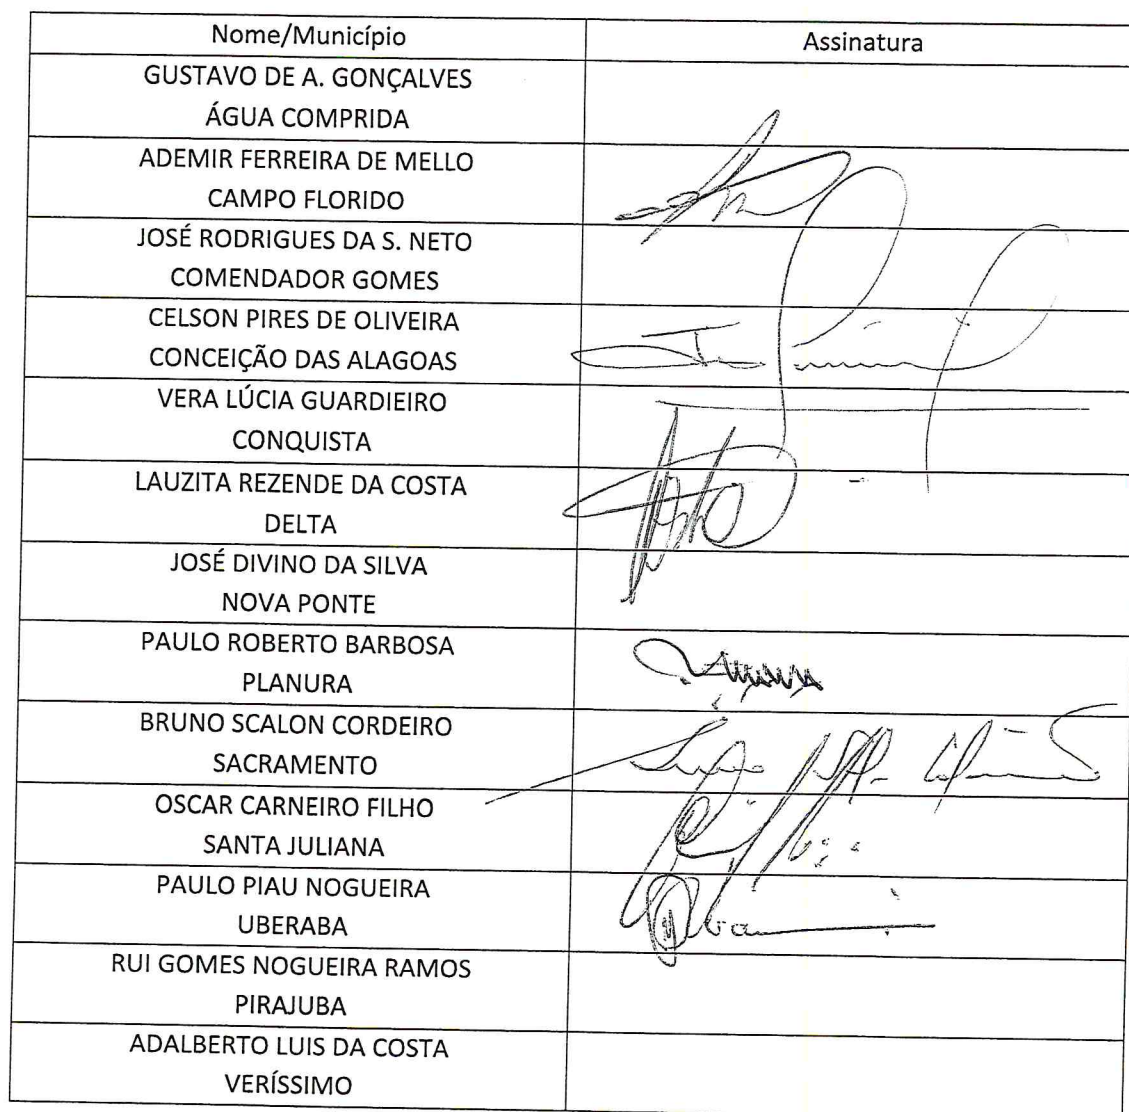 Nome/Município
Assinatura
GUSTAVO DE A. GONÇALVES
ÁGUA COMPRIDA
ADEMIR FERREIRA DE MELLO
CAMPO FLORIDO
JOSÉ RODRIGUES DA S. NETO
COMENDADOR GOMES
CELSON PIRES DE OLIVEIRA
CONCEIÇÃO DAS ALAGOAS
VERA LÚCIA GUARDIEIRO
CONQUISTA
LAUZITA REZENDE DA COSTA
DELTA
JOSÉ DIVINO DA SILVA
NOVA PONTE
PAULO ROBERTO BARBOSA
PLANURA
BRUNO SCALON CORDEIRO
SACRAMENTO
OSCAR CARNEIRO FILHO
SANTA JULIANA
PAULO PIAU NOGUEIRA
UBERABA
RUI GOMES NOGUEIRA RAMOS
PIRAJUBA
ADALBERTO LUIS DA COSTA
VERÍSSIMO